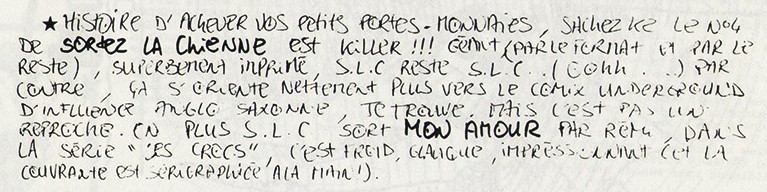 ★ HISTOIRE D'ACHEVER VOS PETITS PORTES-MONNAIES, SACHEZ KE LE NO4
DE SORTEZ LA CHIENNE EST KILLER!!! GEANT (PAR LE FORMAT ET PAR LE
RESTE), SUPERBEMENT IMPRIMÉ, S.L.C RESTE S.L.C.. (OOHH...) PAR
CONTRE, ÇA S'ORIENTE NETTEMENT PLUS VERS LE COMIX UNDERGROUND
D'INFLUENCE ANGLO SAXONNE, JE TROUVE. MAIS C'EST PAS UN
REPROCHE. EN PLUS S.L.C SORT MON AMOUR PAR RÉMI, DANS
LA SÉRIE "LES CROCS", C'EST FROID, GLAUQUE, IMPRESSIONNANT (ET LA
COUVRANTE EST SÉRIGRAPHIÉE A LA MAIN!).